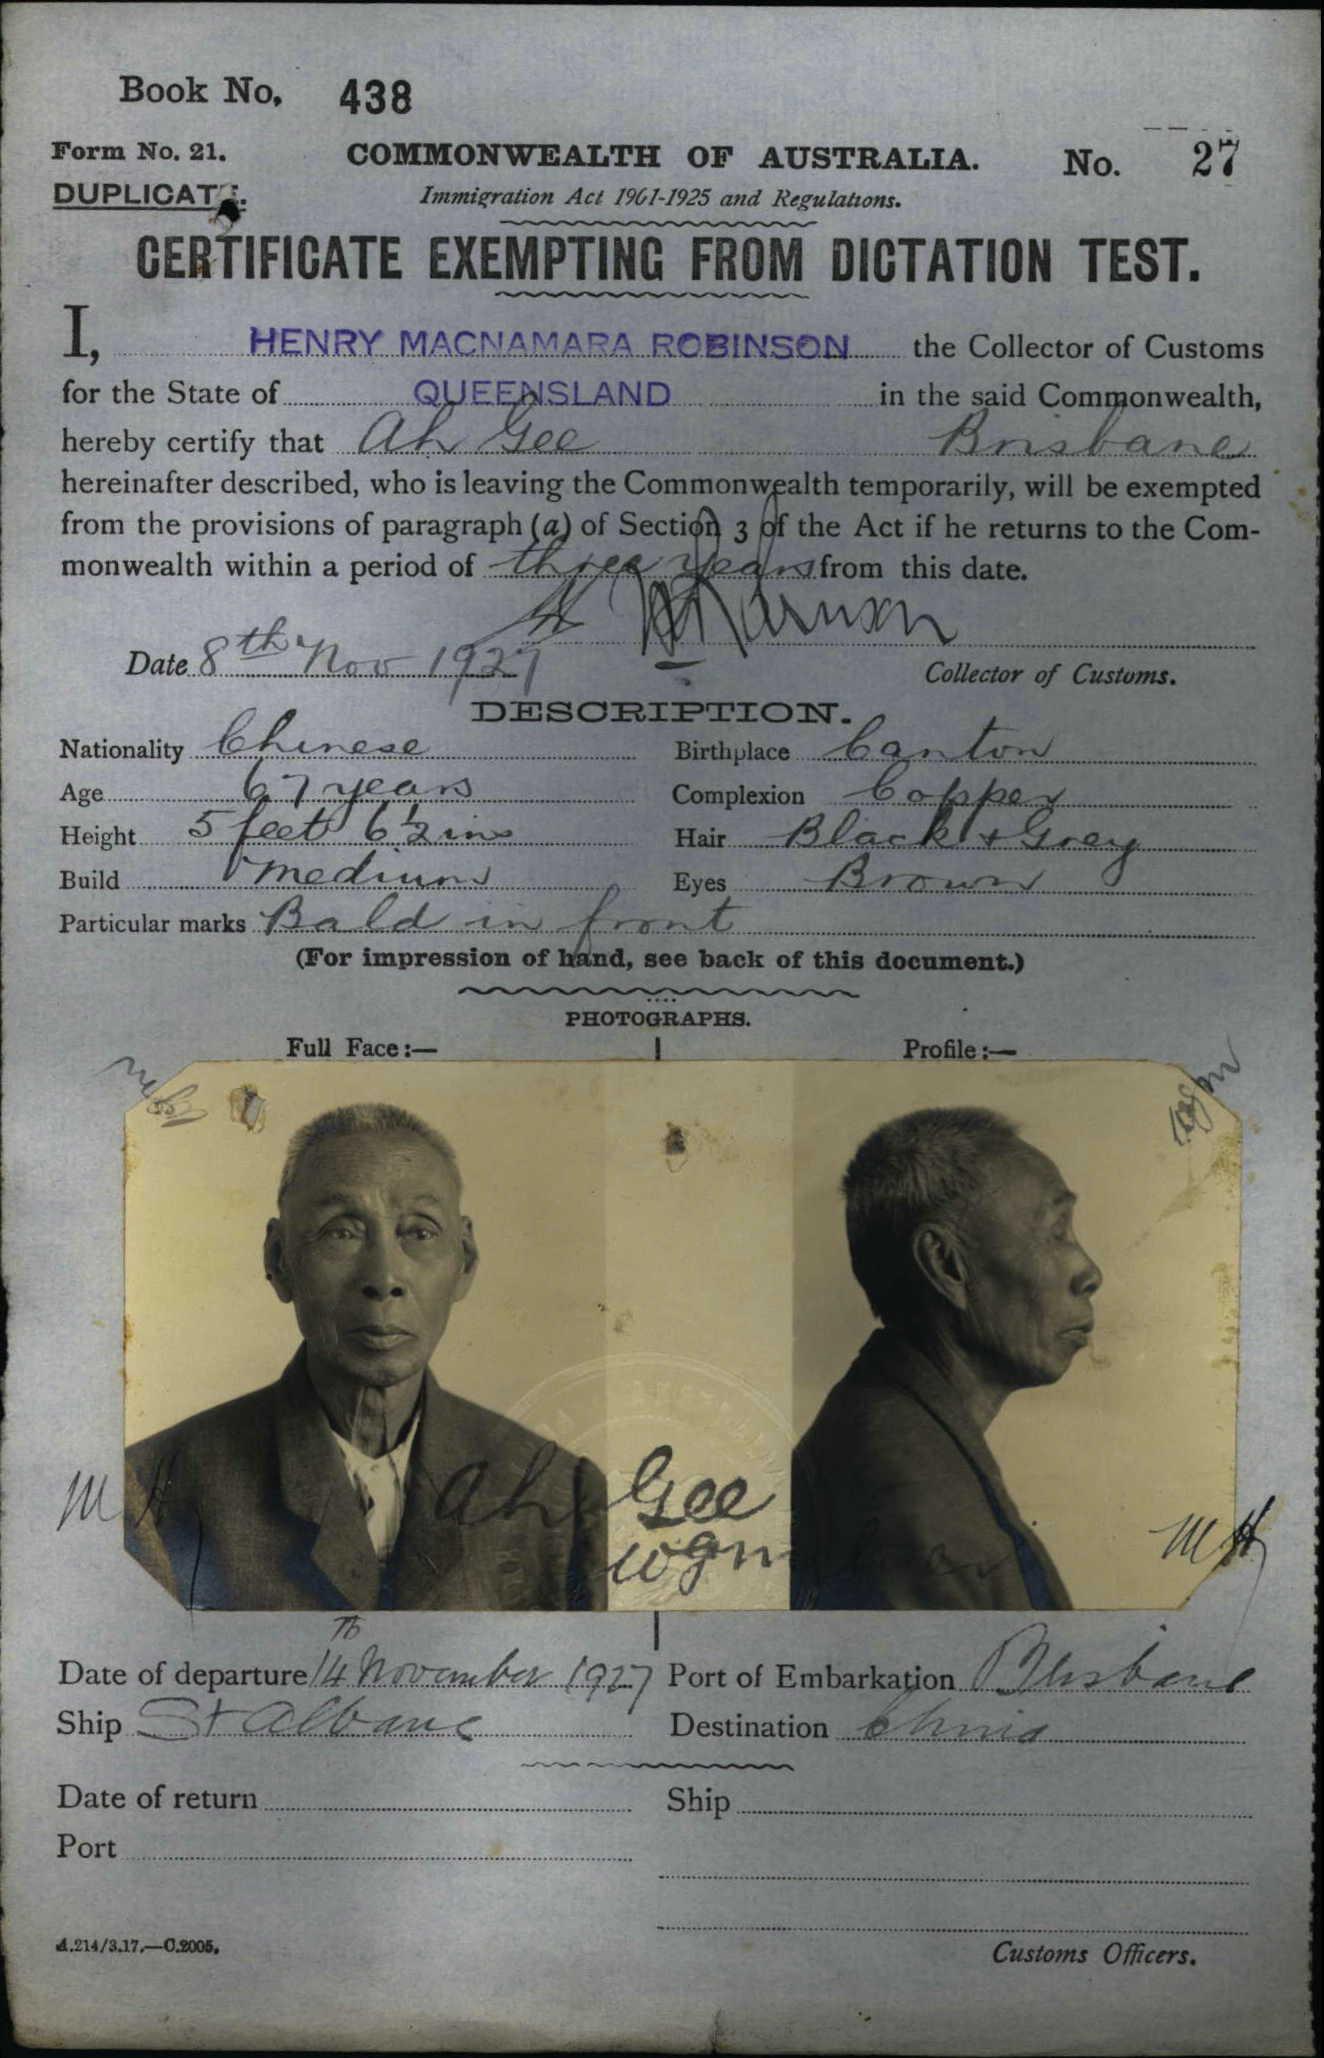 Book No. 438
Form No. 21. COMMONWEALTH OF AUSTRALIA. No. 27
DUPLICATE. Immigration Act 1901-1925 and Regulations.
CERTIFICATE EXEMPTING FROM DICTATION TEST.
I, HENRY MACNAMARA ROBINSON the Collector of Customs
for the State of QUEENSLAND in the said Commonwealth,
hereby certify that Ah Gee Brisbane
hereinafter described, who is leaving the Commonwealth temporarily, will be exempted
from the provisions of paragraph (a) of Section 3 of the Act if he returns to the Com-
monwealth within a period of three years from this date.
Date 8th Nov 1927
Collector of Customs.
DESCRIPTION.
Nationality Chinese Birthplace Canton
Age 67 years Complexion Copper
Height 5 feet 6½ ins Hair Black + Grey
Build medium Eyes Brown
Particular marks Bald in front
(For impression of hand, see back of this document.)
PHOTOGRAPHS.
Full Face:— Profile:—
M H Ah Gee M H
Date of departure 14th November 1927 Port of Embarkation Brisbane
Ship St Albans Destination China
Date of return Ship
Port
A.214/3.17.—C.2005.
Customs Officers.